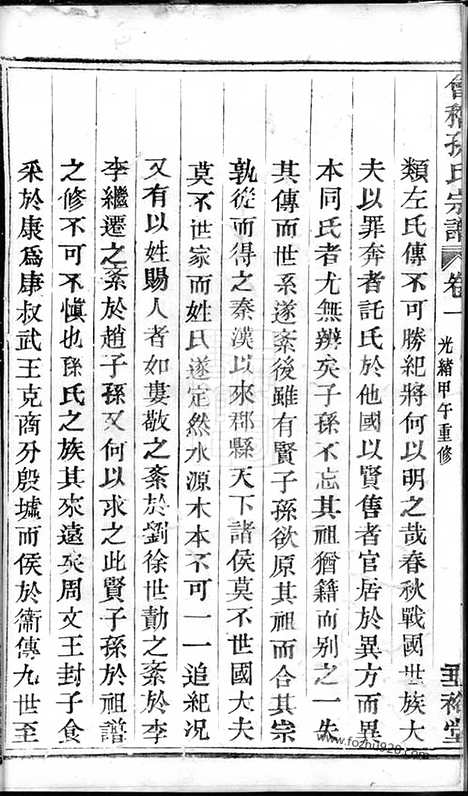 會稽孫氏宗譜 卷一 光緒甲午重修
類左氏傳不可勝紀將何以明之哉春秋戰國世族大
夫以罪奔者託氏於他國以賢售者官居於異方而異
本同氏者尤無辨矣子孫不忘其祖猶籍而别之一失
其傳而世系遂紊後雖有賢子孫欲原其祖而合其宗
孰從而得之秦漢以來郡縣天下諸侯莫不世國大夫
莫不世家而姓氏遂定然水源木本不可一一追紀况
又有以姓賜人者如婁敬之紊於劉徐世勣之紊於李
李繼遷之紊於趙子孫又何以求之此賢子孫於祖譜
之修不可不愼也孫氏之族其來遠矣周文王封子食
采於康爲康叔武王克商分殷墟而侯於衛傳九世至
www.fozhu920.com